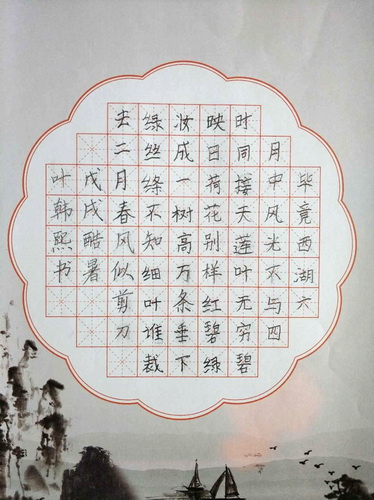 毕竟西湖六
月中风光不与四
时同接天莲叶无穷碧
映日荷花别样红碧绿
妆成一树高万条垂下
绿丝绦不知细叶谁裁
去二月春风似剪刀
戊戌酷暑
叶韩熙书